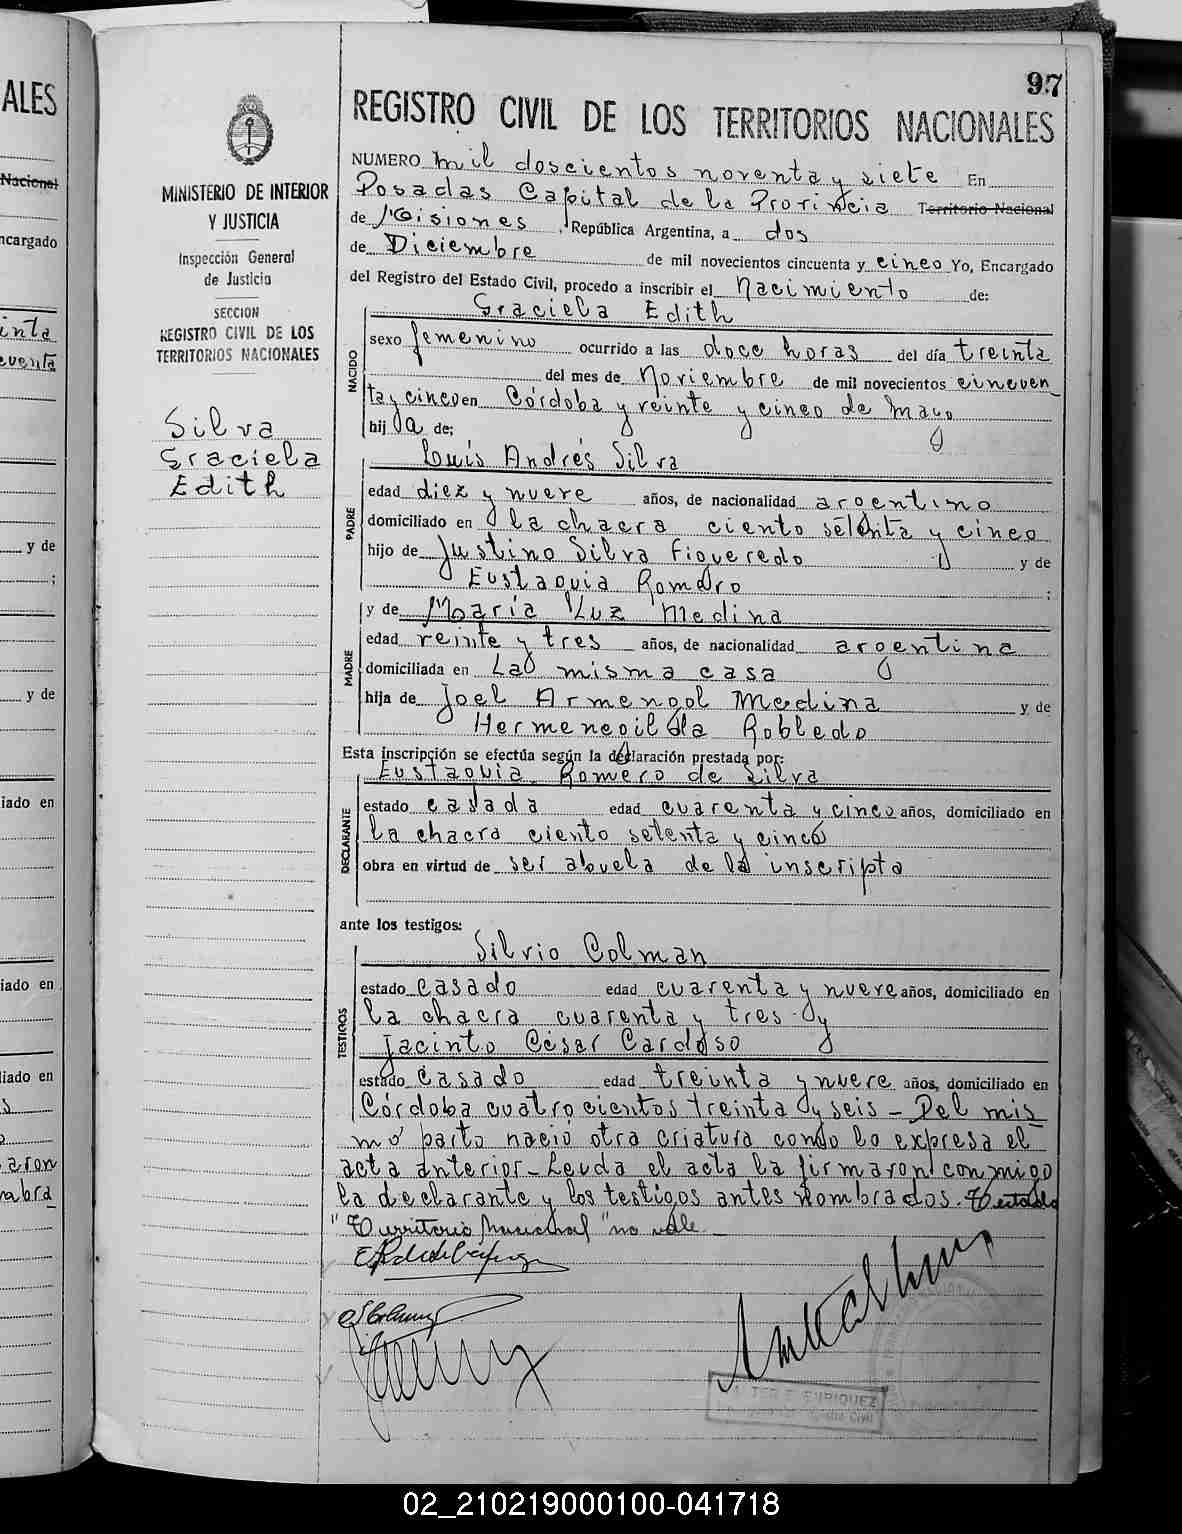 97
ALES
Nacional
ncargado
inta
cuenta
y de
;
y de
iado en
iado en
liado en
s
aron
mbra
MINISTERIO DE INTERIOR
Y JUSTICIA
Inspección General
de Justicia
SECCION
REGISTRO CIVIL DE LOS
TERRITORIOS NACIONALES
Silva
Graciela
Edith
REGISTRO CIVIL DE LOS TERRITORIOS NACIONALES
NUMERO mil doscientos noventa y siete En
Posadas Capital de la Provincia Territorio Nacional
de Misiones, República Argentina, a dos
de Diciembre de mil novecientos cincuenta y cinco Yo, Encargado
del Registro del Estado Civil, procedo a inscribir el nacimiento de:
NACIDO
Graciela Edith
sexo femenino ocurrido a las doce horas del día treinta
del mes de noviembre de mil novecientos cincuen
ta y cinco en Córdoba y veinte y cinco de mayo
hija de;
PADRE
Luis Andrés Silva
edad diez y nueve años, de nacionalidad argentino
domiciliado en la chacra ciento setenta y cinco
hijo de Justino Silva Figueredo y de
Eustaquia Romero ;
MADRE
y de María Luz Medina
edad veinte y tres años, de nacionalidad argentina
domiciliada en La misma casa
hija de Joel Armengol Medina y de
Hermenegilda Robledo
Esta inscripción se efectúa según la declaración prestada por:
DECLARANTE
Eustaquia Romero de Silva
estado casada edad cuarenta y cinco años, domiciliado en
la chacra ciento setenta y cinco
obra en virtud de ser abuela de la inscripta
ante los testigos:
TESTIGOS
Silvio Colman
estado casado edad cuarenta y nueve años, domiciliado en
la chacra cuarenta y tres y
Jacinto César Cardoso
estado casado edad treinta y nueve años, domiciliado en
Córdoba cuatrocientos treinta y seis - Del mis
mo parto nació otra criatura como lo expresa el
acta anterior - Leuda el acta la firmaron conmigo
la declarante y los testigos antes nombrados. Testado
"Territorio Nacional" no vale -
TER E. ENRIQUEZ
Civil
02_210219000100-041718